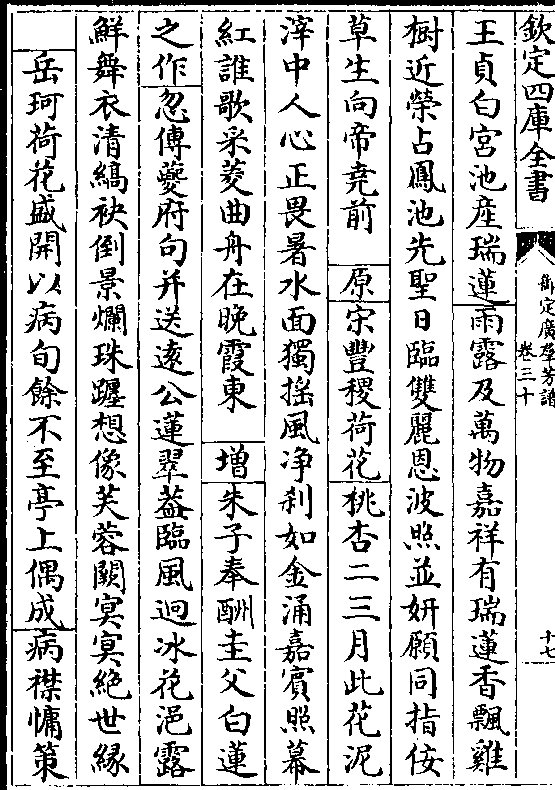 欽定四庫全書
御定廣羣芳譜
卷三十
十七
王貞白宮池産瑞蓮雨露及萬物嘉祥有瑞蓮香飄雞
樹近榮占鳳池先聖日臨雙麗恩波照並妍願同指佞
草生向帝堯前 原宋豐稷荷花桃杏二三月此花泥
滓中人心正畏暑水面獨搖風净刹如金涌嘉賓照幕
紅誰歌采菱曲舟在晚霞東 增朱子奉酬圭父白蓮
之作忽傳夔府句并送遠公蓮翠葢臨風迥冰花浥露
鮮舞衣清縞袂倒景爛珠躔想像芙蓉闕冥冥絶世縁
岳珂荷花盛開以病旬餘不至亭上偶成病襟慵策